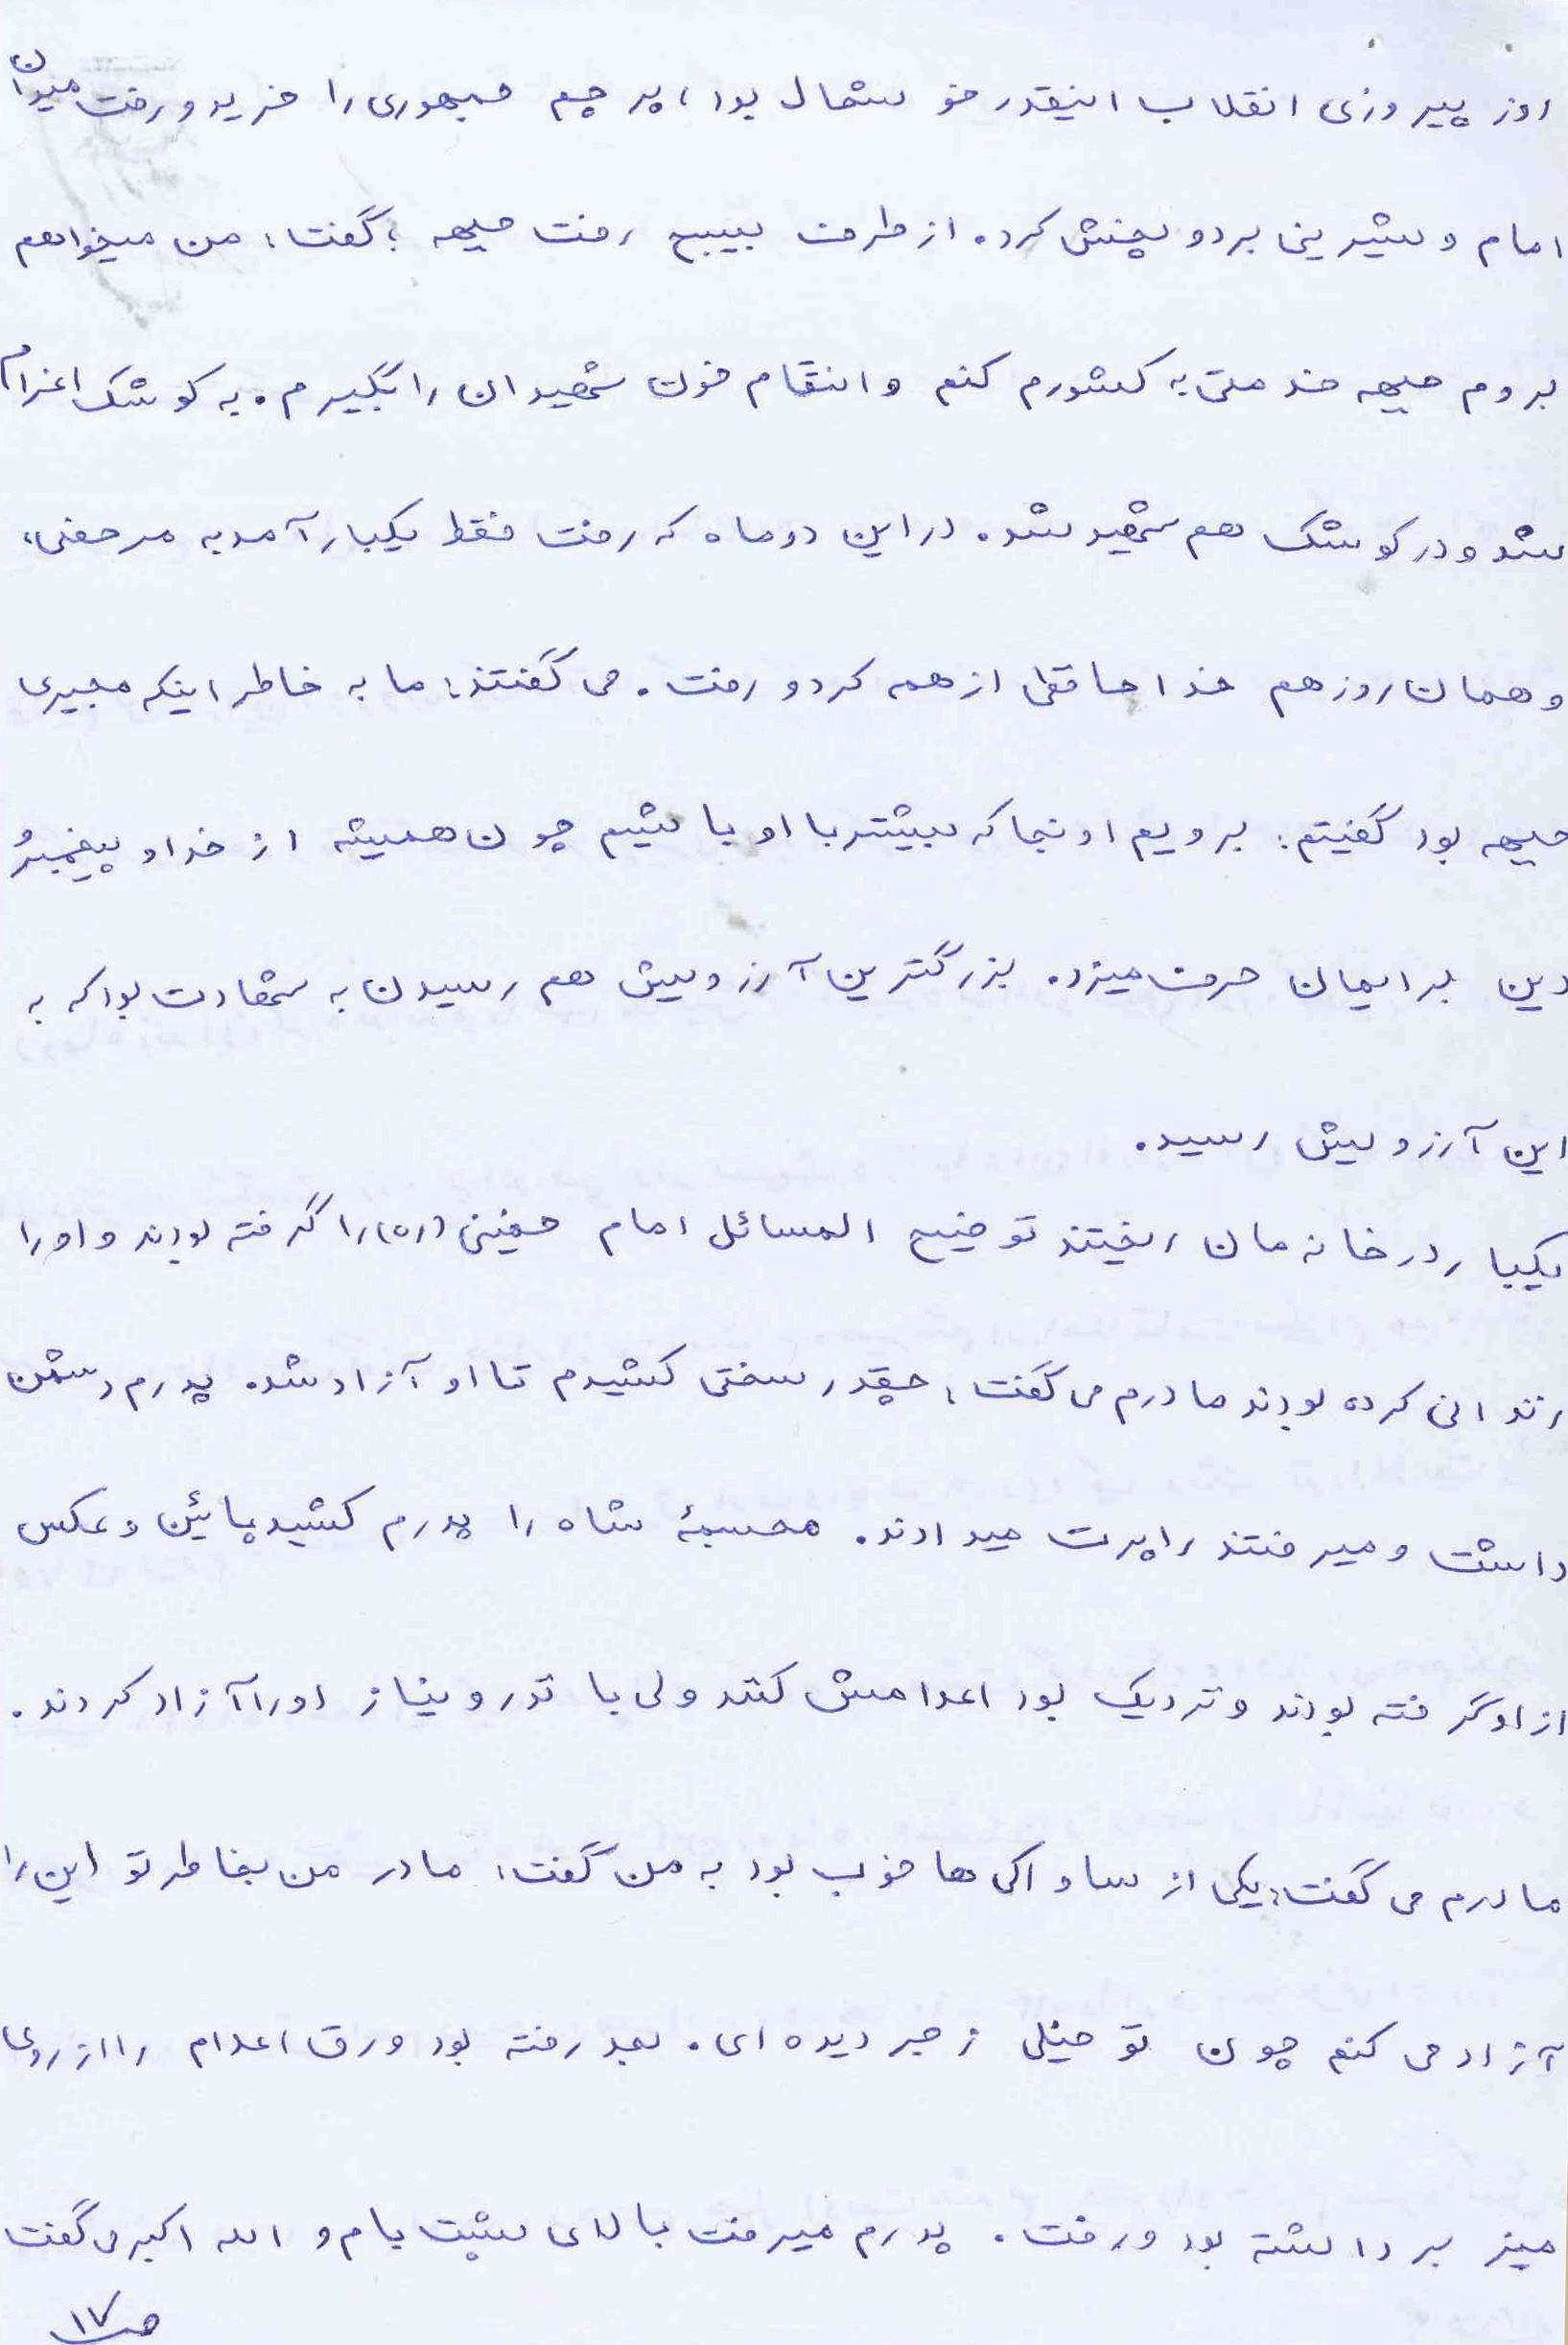 روز پیروزی انقلاب اینقدر خوشحال بود، پرچم جمهوری را خرید و رفت میدان
امام و شیرینی برد و پخش کرد. از طرف بسیج رفت جبهه؛ گفت: من میخواهم
بروم جبهه خدمتی به کشورم کنم و انتقام خون شهیدان را بگیرم. به کوشک اعزام
شد و در کوشک هم شهید شد. در این دو ماه که رفت فقط یکبار آمد به مرخصی،
و همان روز هم خداحافظی از همه کرد و رفت. می گفتند: ما به خاطر اینکه مجیری
جبهه بود گفتیم: برویم اونجا که بیشتر با او باشیم چون همیشه از خدا و پیغمبر و
دین برایمان حرف میزد. بزرگترین آرزویش هم رسیدن به شهادت بود که به
این آرزویش رسید.
یکبار در خانه مان ریختند توضیح المسائل امام خمینی (ره) را گرفته بودند و او را
زندانی کرده بودند مادرم می گفت: چقدر سختی کشیدم تا او آزاد شد. پدرم دشمن
داشت و میرفتند راپرت میدادند. مجسمهٔ شاه را پدرم کشید پائین و عکس
از او گرفته بودند و نزدیک بود اعدامش کنند ولی با نذر و نیاز او را آزاد کردند.
مادرم می گفت: یکی از ساواکی ها خوب بود به من گفت: مادر من بخاطر تو این را
آزاد می کنم چون تو خیلی زجر دیده ای. بعد رفته بود ورق اعدام را از روی
میز برداشته بود و رفت. پدرم میرفت بالای پشت بام و الله اکبر می گفت
ص ۱۷